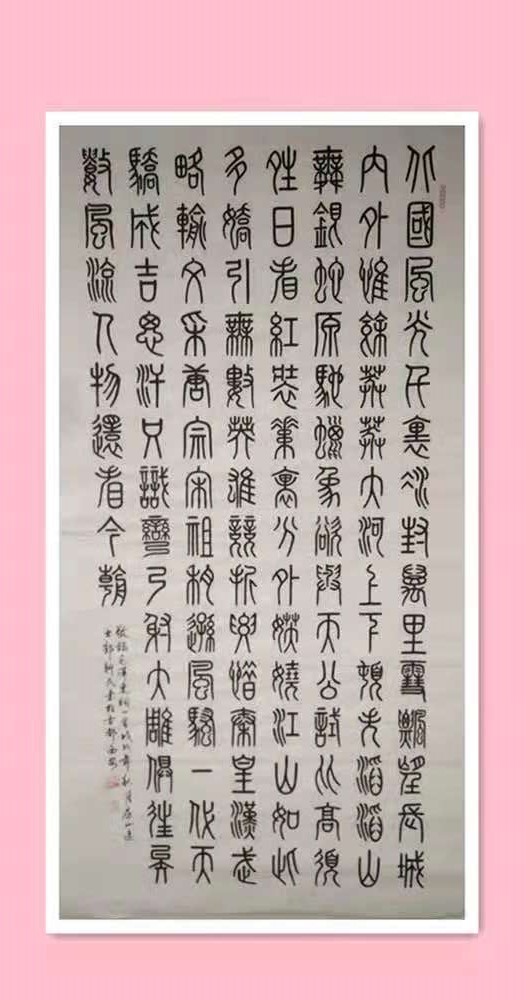 北國風光千裏冰封萬里雪飄望長城
內外惟餘莽莽大河上下頓失滔滔山
舞銀蛇原馳蠟象欲與天公試比高須
晴日看紅裝素裹分外妖嬈江山如此
多嬌引無數英雄競折腰惜秦皇漢武
略輸文采唐宗宋祖稍遜風騷一代天
驕成吉思汗只識彎弓射大雕俱往矣
數風流人物還看今朝
敬錄毛澤東詞一首戊戌年秋月
書於古都西安